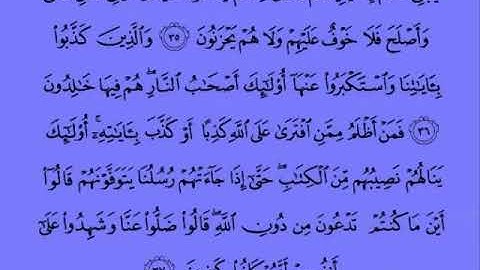 وَأَصْلَحَ فَلَا خَوْفٌ عَلَيْهِمْ وَلَا هُمْ يَحْزَنُونَ ۝٣٥ وَٱلَّذِينَ كَذَّبُوا۟
بِـَٔايَـٰتِنَا وَٱسْتَكْبَرُوا۟ عَنْهَآ أُو۟لَـٰٓئِكَ أَصْحَـٰبُ ٱلنَّارِ ۖ هُمْ فِيهَا خَـٰلِدُونَ
۝٣٦ فَمَنْ أَظْلَمُ مِمَّنِ ٱفْتَرَىٰ عَلَى ٱللَّهِ كَذِبًا أَوْ كَذَّبَ بِـَٔايَـٰتِهِۦٓ ۚ أُو۟لَـٰٓئِكَ
يَنَالُهُمْ نَصِيبُهُم مِّنَ ٱلْكِتَـٰبِ ۖ حَتَّىٰٓ إِذَا جَآءَتْهُمْ رُسُلُنَا يَتَوَفَّوْنَهُمْ قَالُوٓا۟
أَيْنَ مَا كُنتُمْ تَدْعُونَ مِن دُونِ ٱللَّهِ ۖ قَالُوا۟ ضَلُّوا۟ عَنَّا وَشَهِدُوا۟ عَلَىٰٓ